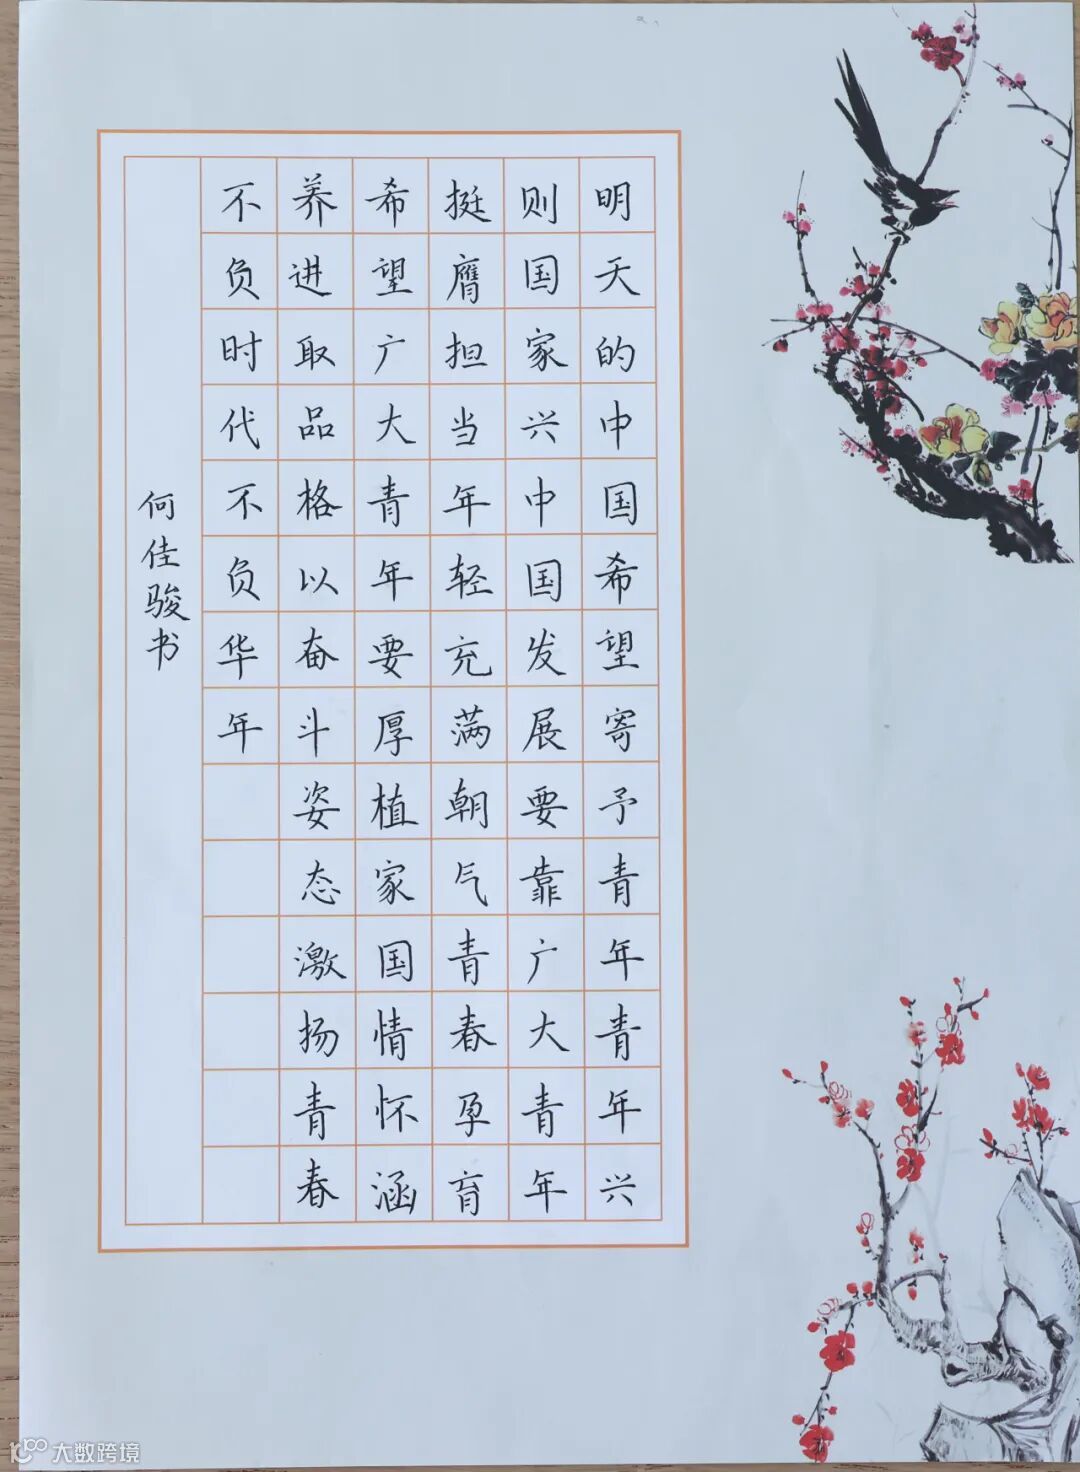 明天的中国希望寄予青年青年兴
则国家兴中国发展要靠广大青年
挺膺担当年轻充满朝气青春孕育
希望广大青年要厚植家国情怀涵
养进取品格以奋斗姿态激扬青春
不负时代不负华年
何佳骏书
大数跨境